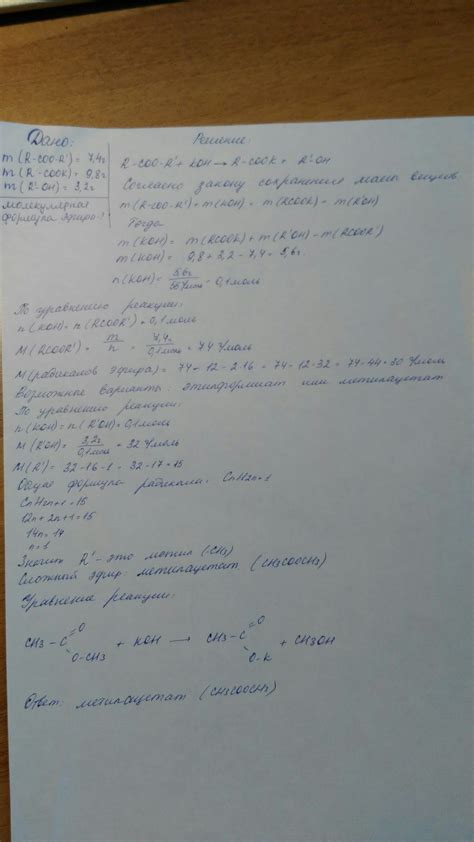 Дано:
m(R-COO-R') = 7,4г
m(R-COOK) = 9,8г
m(R'OH) = 3,2г
молекулярная
формула эфира-?
Решение:
R-COO-R' + KOH → R-COOK + R'OH
Согласно закону сохранения массы веществ
m(R-COO-R') + m(KOH) = m(RCOOK) + m(R'OH)
Тогда
m(KOH) = m(RCOOK) + m(R'OH) - m(RCOOR')
m(KOH) = 9,8 + 3,2 - 7,4 = 5,6г.
n(KOH) = 5,6г / 56г/моль = 0,1моль
По уравнению реакции:
n(KOH) = n(RCOOR') = 0,1моль
M(RCOOR') = m / n = 7,4г / 0,1моль = 74 г/моль
M(радикалов эфира) = 74 - 12 - 2·16 = 74 - 12 - 32 = 74 - 44 = 30 г/моль
Возможные варианты: этилформиат или метилацетат
По уравнению реакции:
n(KOH) = n(R'OH) = 0,1моль
M(R'OH) = 3,2г / 0,1моль = 32 г/моль
M(R') = 32 - 16 - 1 = 32 - 17 = 15
Общая формула радикала: CnH2n+1
CnH2n+1 = 15
12n + 2n + 1 = 15
14n = 14
n = 1
Значит R' - это метил (-CH3)
Сложный эфир: метилацетат (CH3COOCH3)
Уравнение реакции:
CH3 - C =O O-CH3 + KOH → CH3 - C =O O-K + CH3OH
Ответ: метилацетат (CH3COOCH3)